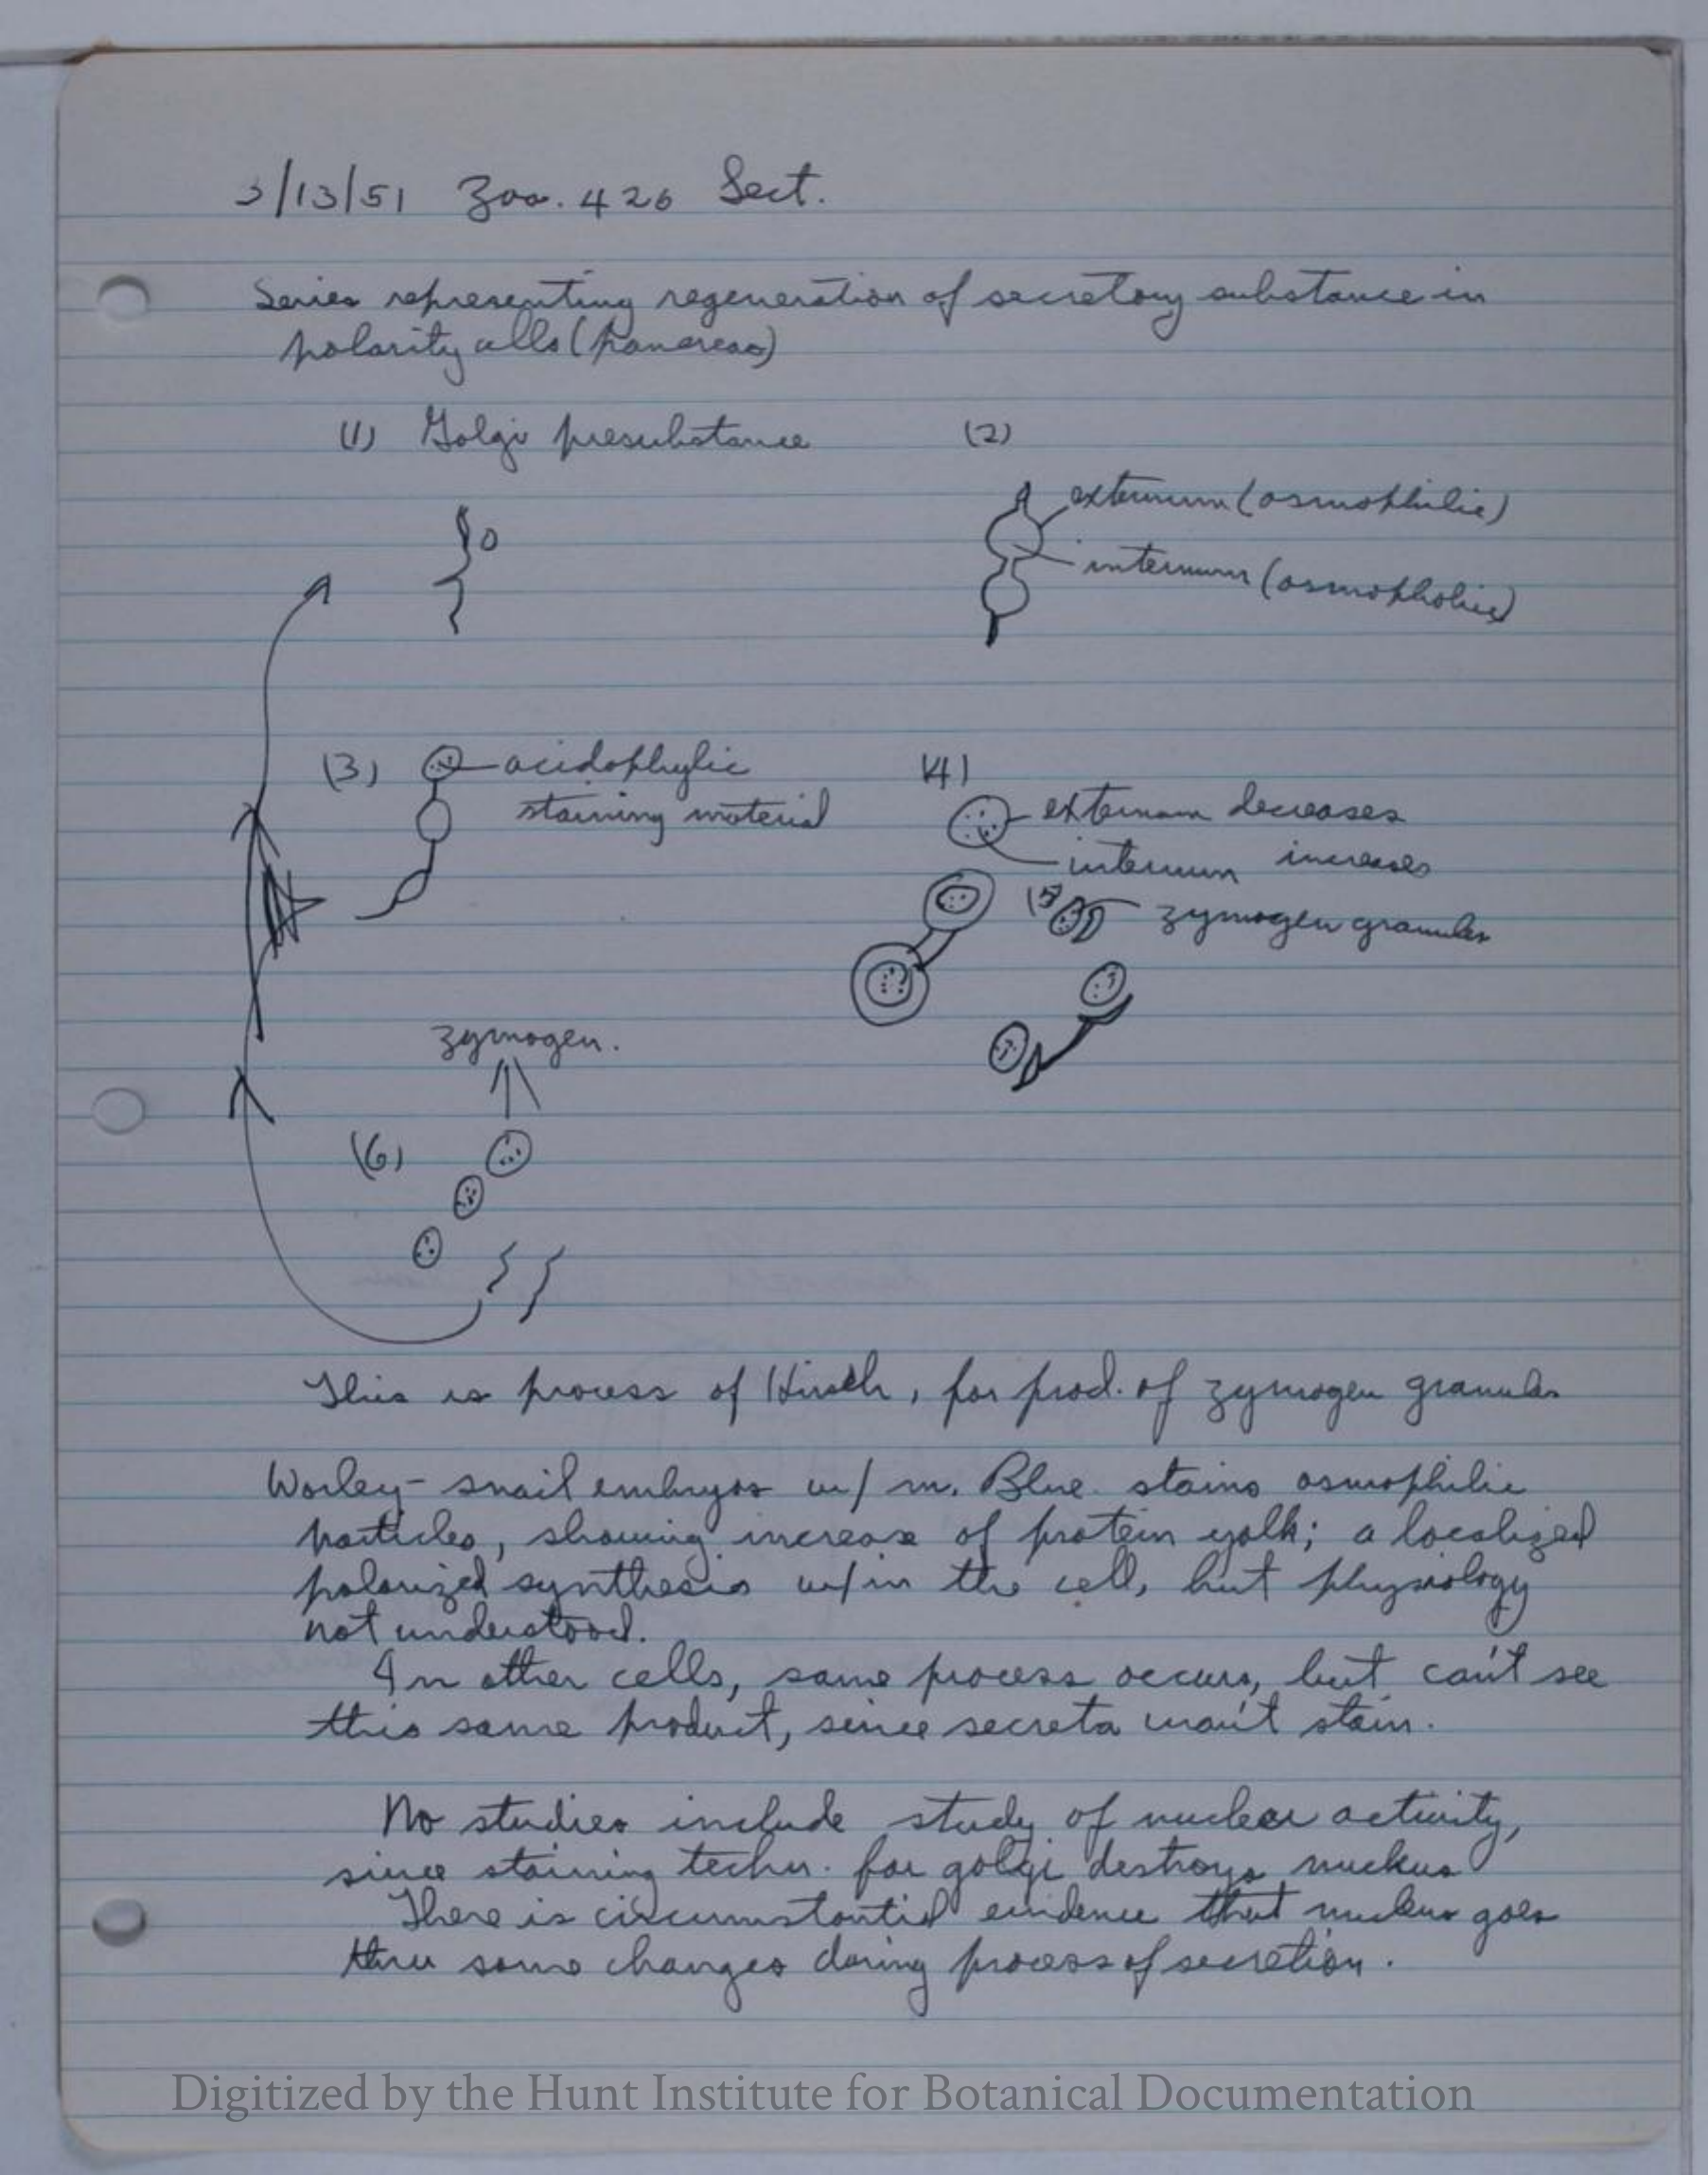 3/13/51 Zoo. 426 Sect.
Series representing regeneration of secretory substance in
polarity cells (pancreas)
(1) Golgi presubstance
(2)
externum (osmophilic)
internum (osmopholic)
(3) acidophylic
staining material
(4)
externum decreases
internum increases
(5) zymogen granules
zymogen.
(6)
This is process of Hirsch, for prod. of zymogen granules
Worley - snail embryos w/ m. Blue. stains osmophilic
particles, showing increase of protein yolk; a localized
polarized synthesis w/in the cell, but physiology
not understood.
In other cells, same process occurs, but can't see
this same product, since secreta won't stain.
No studies include study of nuclear activity,
since staining techn. for golgi destroys nucleus
There is circumstantial evidence that nucleus goes
thru some changes during process of secretion.
Digitized by the Hunt Institute for Botanical Documentation